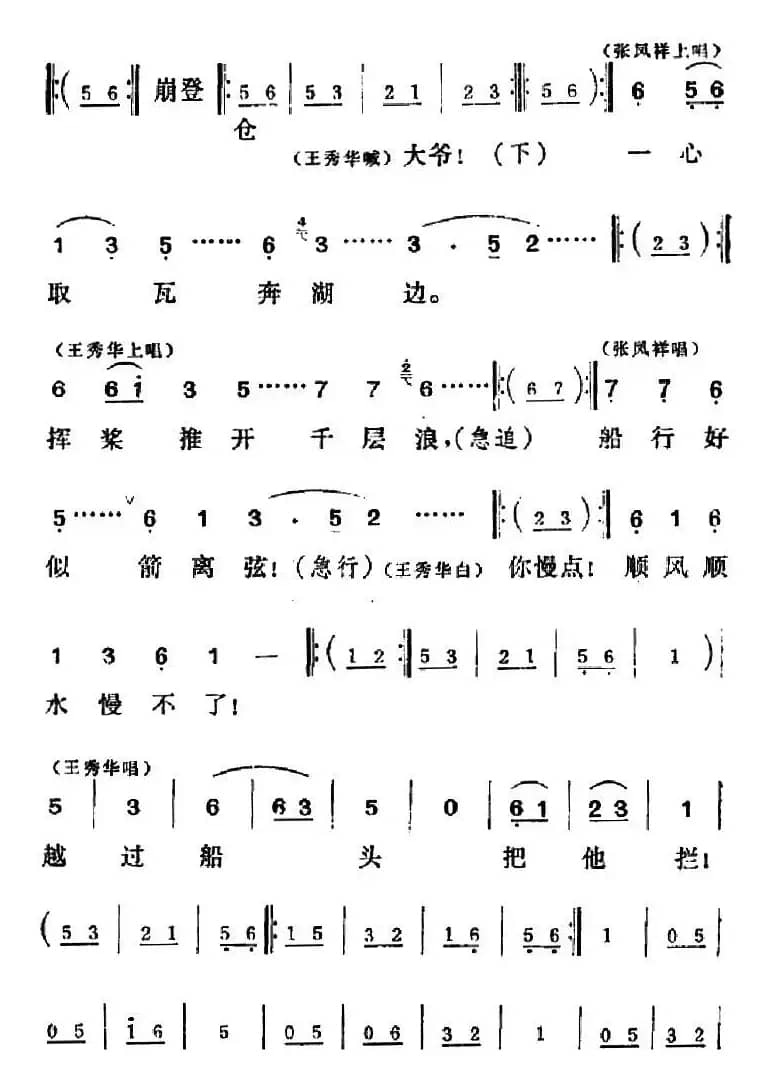 (张凤祥上唱)
‖:( 5 6 :‖ 崩登 ‖: 5 6 | 5 3 | 2 1 | 2 3 :‖: 5 6 ):‖ 6 5 6
仓
(王秀华喊) 大爷! (下) 一 心
1 3 5 …… 6 4 3 …… 3 . 5 2 …… ‖:( 2 3 ):‖
取 瓦 奔 湖 边。
(王秀华上唱) (张凤祥唱)
6 6 i 3 5 …… 7 7 2 6 …… ‖:( 6 7 ):‖ 7 7 6
挥 桨 推 开 千 层 浪,(急追) 船 行 好
5 …… ∨ 6 1 3 . 5 2 …… ‖:( 2 3 ):‖ 6 1 6
似 箭 离 弦!(急行)(王秀华白) 你慢点! 顺 风 顺
1 3 6 1 — ‖:( 1 2 :‖ 5 3 | 2 1 | 5 6 | 1 ) |
水 慢 不 了!
(王秀华唱)
5 | 3 | 6 | 6 3 | 5 | 0 | 6 1 | 2 3 | 1 |
越 过 船 头 把 他 拦!
( 5 3 | 2 1 | 5 6 ‖: 1 5 | 3 2 | 1 6 | 5 6 :‖ 1 | 0 5 |
0 5 | i 6 | 5 | 0 5 | 0 6 | 3 2 | 1 | 0 5 | 3 2 |